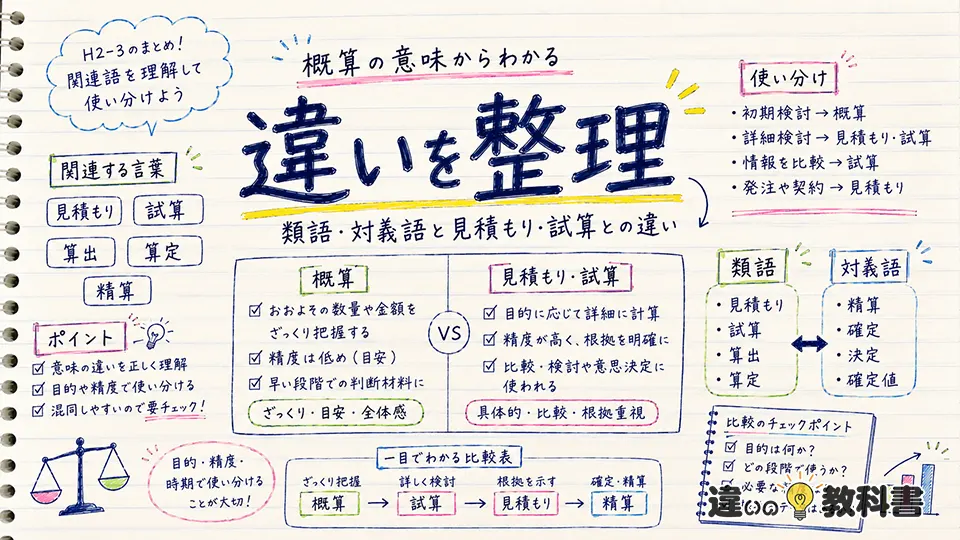 H2-3のまとめ!
関連語を理解して
使い分けよう
概算の意味からわかる
違いを整理
類語・対義語と見積もり・試算との違い
使い分け
・初期検討→概算
・詳細検討→見積もり・試算
・情報を比較→試算
・発注や契約→見積もり
関連する言葉
見積もり
試算
算出
算定
精算
ポイント
意味の違いを正しく理解
目的や精度で使い分ける
混同しやすいので要チェック!
概算
おおよその数量や金額を
ざっくり把握する
精度は低め(目安)
早い段階での判断材料に
ざっくり・目安・全体感
VS
見積もり・試算
目的に応じて詳細に計算
精度が高く、根拠を明確に
比較・検討や意思決定に
使われる
具体的・比較・根拠重視
類語
・見積もり
・試算
・算出
・算定
対義語
・精算
・確定
・決定
・確定値
目的・精度・
時期で使い分ける
ことが大切!
一目でわかる比較表
ざっくり把握
概算
→
詳しく検討
試算
→
根拠を示す
見積もり
→
確定・精算
精算
比較のチェックポイント
目的は何か?
どの段階で使うか?
必要な
は
違いの教科書